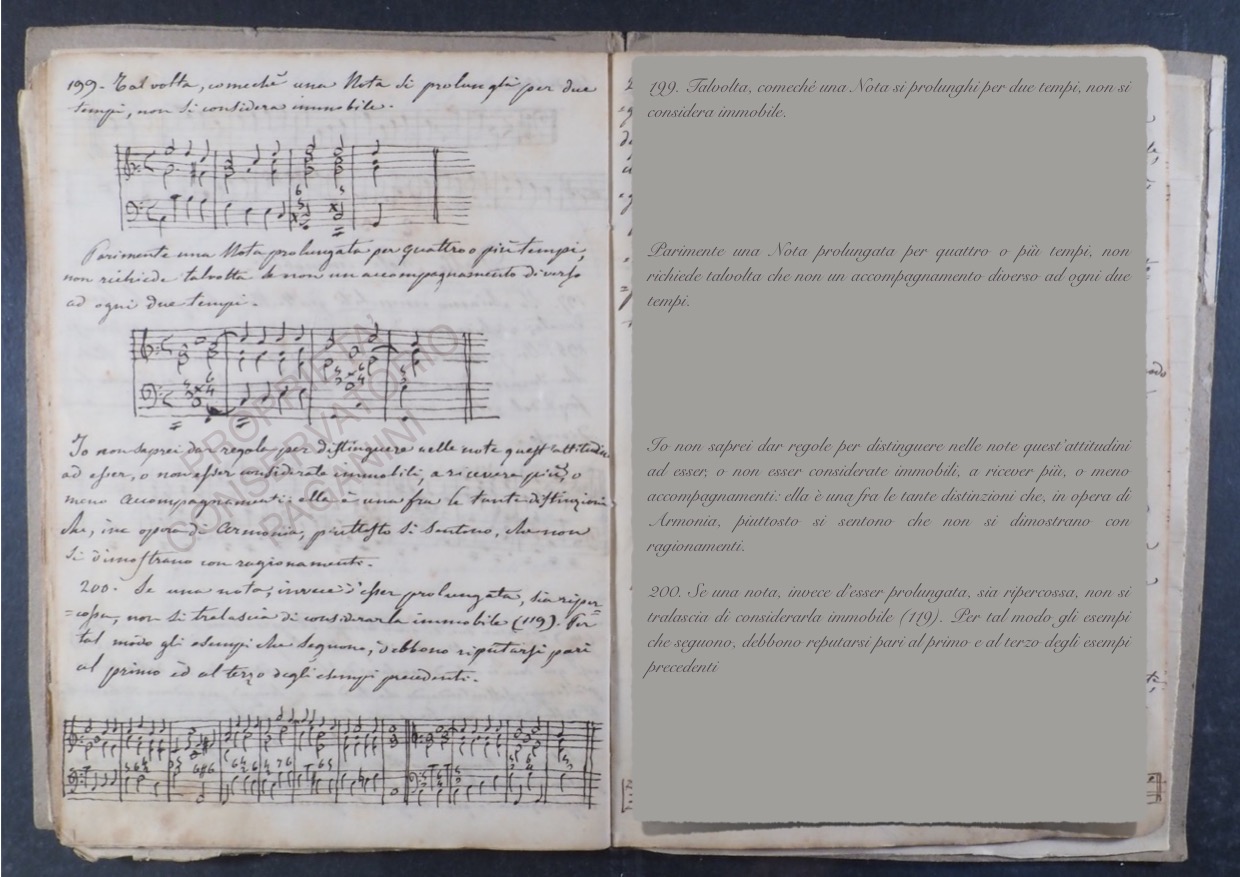 199. Talvolta, comechè una Nota si prolunghi per due
tempi, non si considera immobile.
Parimente una Nota prolungata per quattro o più tempi,
non richiede talvolta che non un accompagnamento diverso
ad ogni due tempi.
Io non saprei dar regole per distinguere nelle note quest'attitudini
ad esser, o non esser considerate immobili, a ricever più, o
meno accompagnamenti: ella è una fra le tante distinzioni
che, in opera di Armonia, piuttosto si sentono, che non
si dimostrano con ragionamenti.
200. Se una nota, invece d'esser prolungata, sia riper=
=cossa, non si tralascia di considerarla immobile (119). Per
tal modo gli esempi che seguono, debbono riputarsi pari
al primo ed al terzo degli esempi precedenti.
PROPRIETA'
CONSERVATORIO
PAGANINI
199. Talvolta, comeché una Nota si prolunghi per due tempi, non si
considera immobile.
Parimente una Nota prolungata per quattro o più tempi, non
richiede talvolta che non un accompagnamento diverso ad ogni due
tempi.
Io non saprei dar regole per distinguere nelle note quest'attitudini
ad esser, o non esser considerate immobili, a ricever più, o meno
accompagnamenti: ella è una fra le tante distinzioni che, in opera di
Armonia, piuttosto si sentono che non si dimostrano con
ragionamenti.
200. Se una nota, invece d'esser prolungata, sia ripercossa, non si
tralascia di considerarla immobile (119). Per tal modo gli esempi
che seguono, debbono reputarsi pari al primo e al terzo degli esempi
precedenti